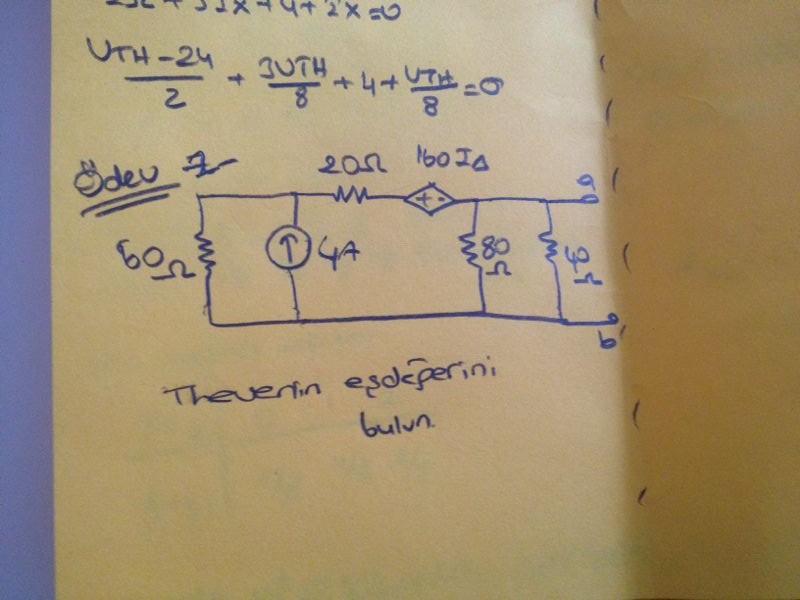 UTH-24/2 + 3UTH/8 + 4 + UTH/8 = 0
Ödev 7-
20Ω 160IΔ
a
60Ω 4A 80Ω 40Ω
+ -
b
Thevenin eşdeğerini
bulun.